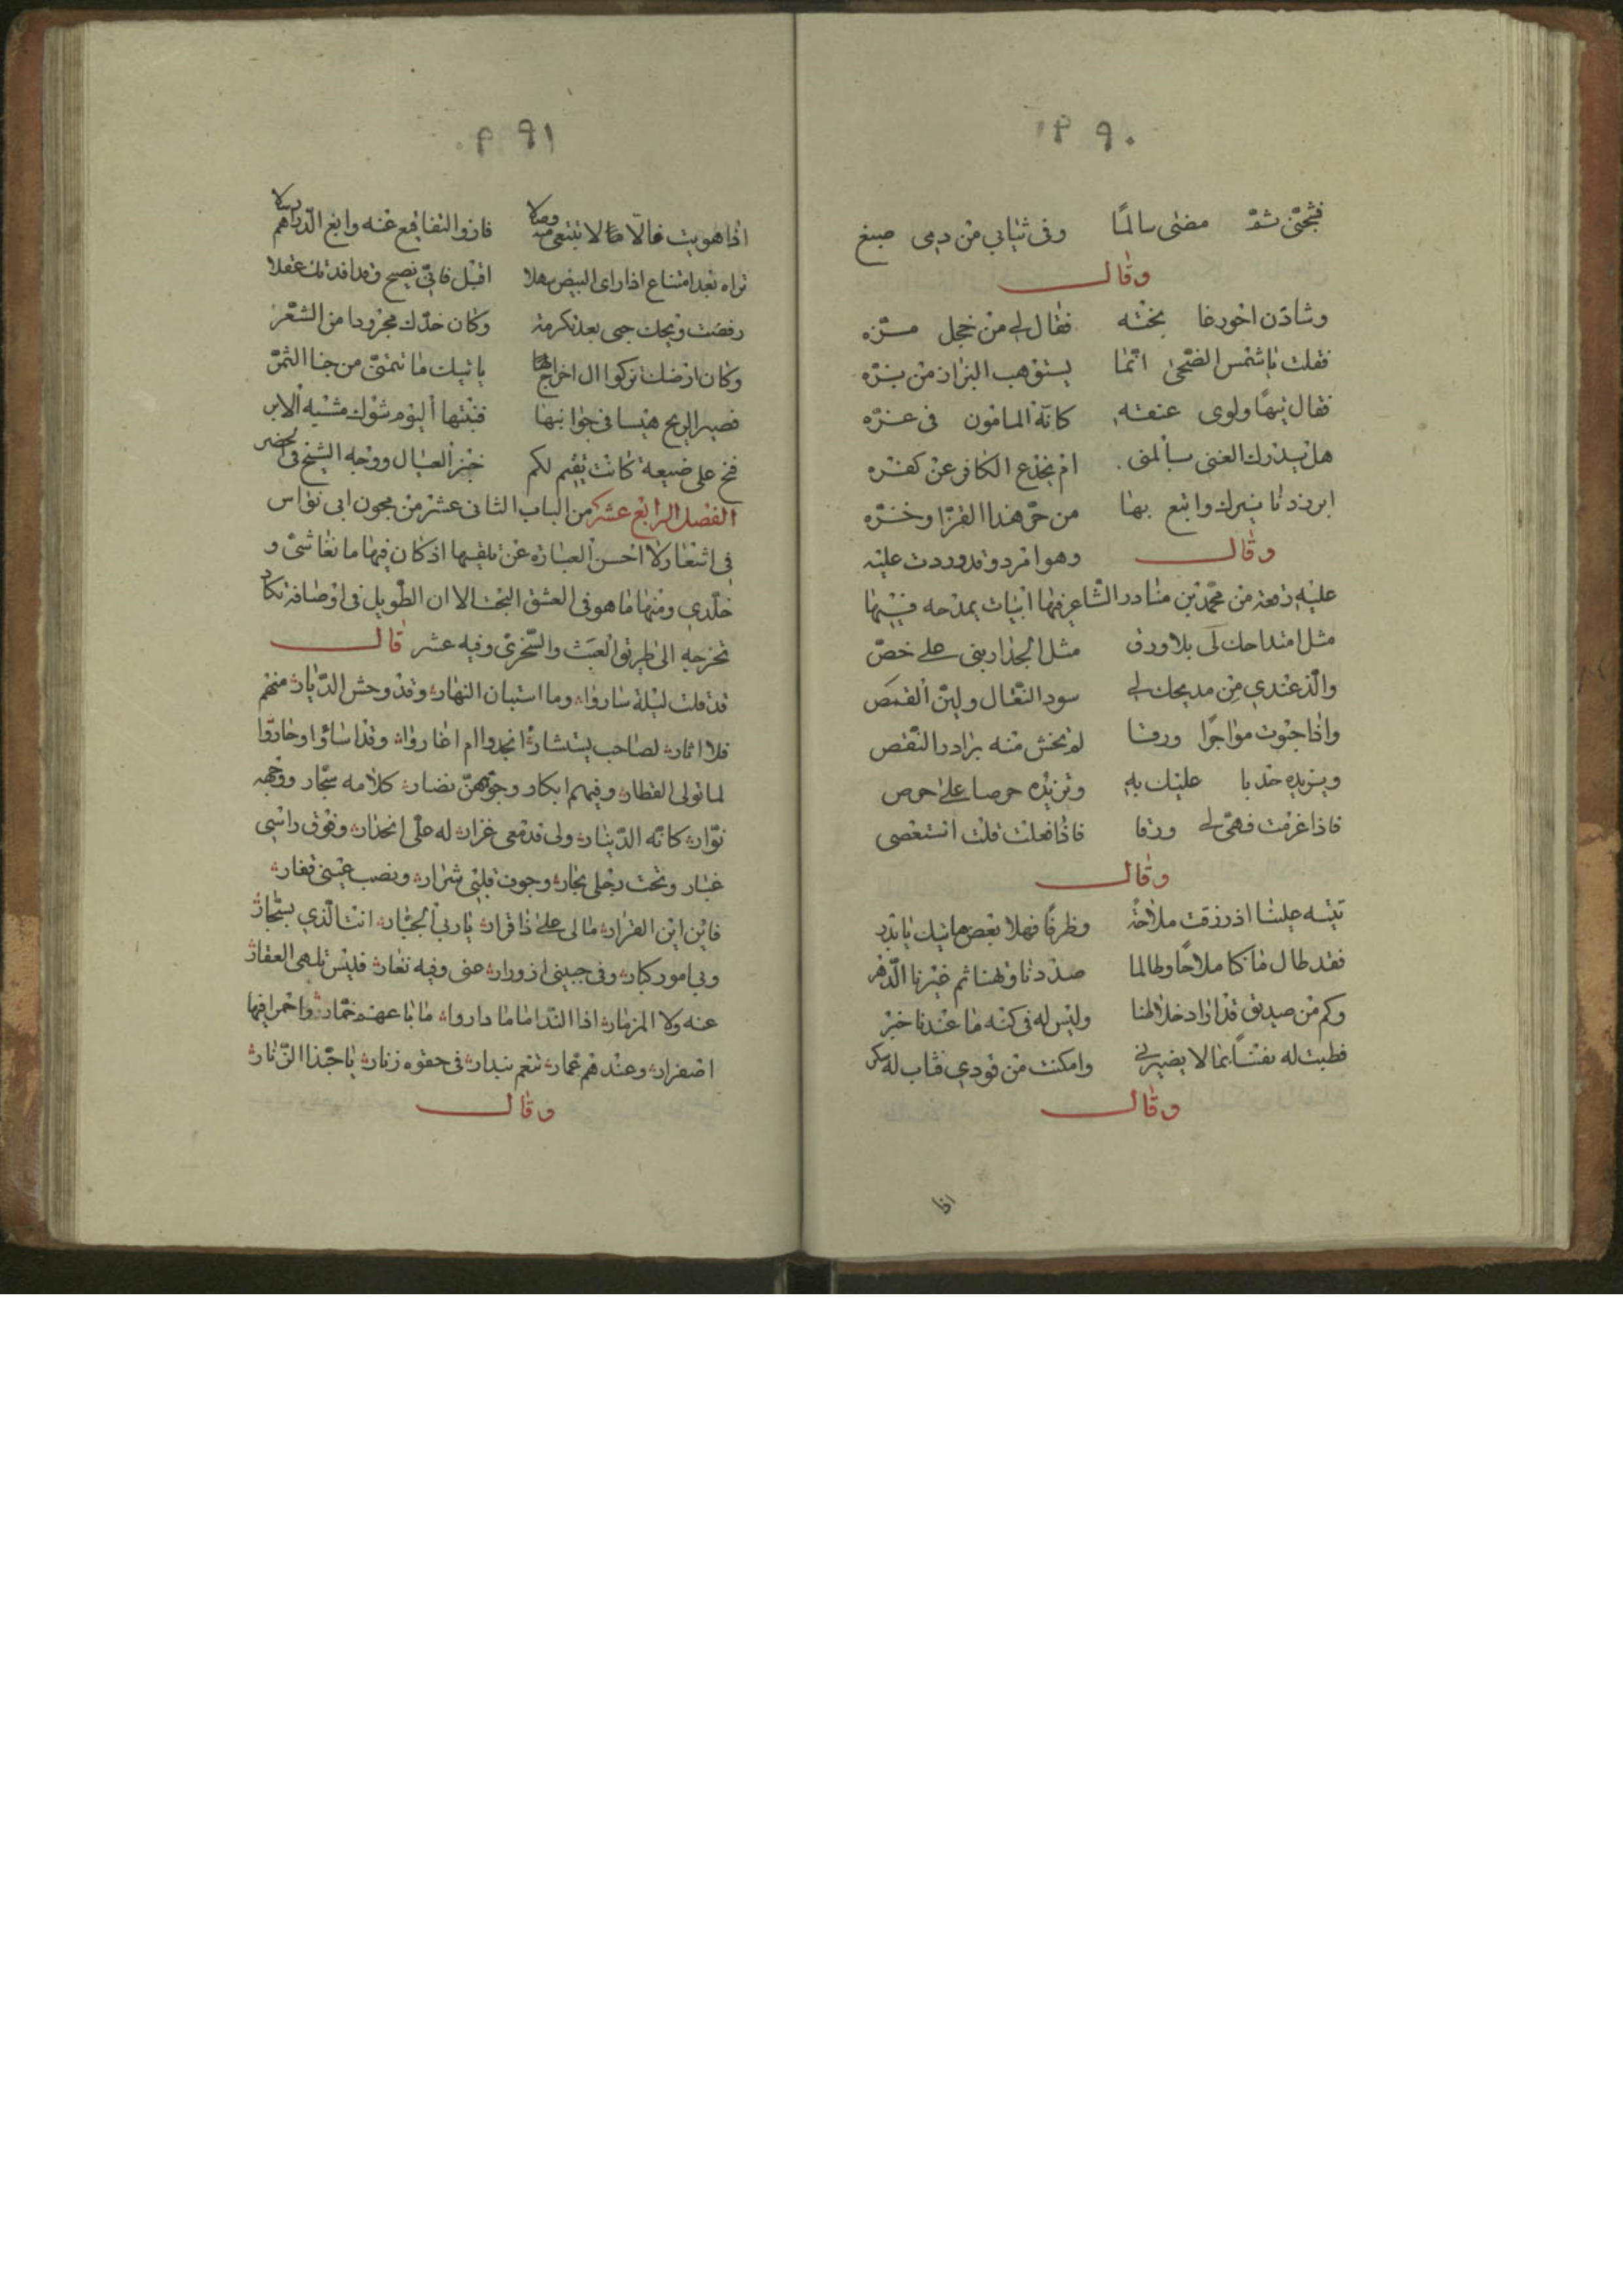 ٢٩٠
فشجنى ثمّ مضى سالمًا وفى ثيابي من دمى صبغ
وقال
وشادن اخور غا بخشه فقال لى من خجل مسزه
فقلت ياشمس الضحى انما يستوهب البزاز من بزه
فقال تيهًا ولوى عنقه كانه المامون فى عزه
هل يدرك الغنى بالمنى ام يخدع الكافر عن كفره
ابرز دنانيرك وابتع بها من حر هذا القز او خزه
وقال وهو امرد وقد وردت عليه
عليه رقعة من محمد بن مناذر الشاعر فيها ابيات يمدحه فيها
مثل امتداحك لى بلا ورق مثل الجدار بنى على خص
والذ عندي من مديحك لى سود النعال ولين القمص
واذا جنوت مواجرًا ورقا لم تخش منه بوادر النقص
ويزيده حدبا عليك به وتزيده حرصا على حرص
فاذا عزمت فهى لى ورقا فاذا فعلت قلت استعصى
وقال
تتيه علينا اذ رزقت ملاحة وظرفًا فهلا بعض مابيك يا بدر
فقد طال ما كنا ملاحًا وطالما صددنا وتهنا ثم غيرنا الدهر
وكم من صديق قد اراد خلالنا وليس له فى كنه ما عندنا خبر
فطبت له نفسًا بما لا يضيرنى وامكنت من قودي فثاب له سكر
وقال
اذا
٢٩١
اذا هويت فالا مالا تبتغى وصلا فازو التفا فع عنه وابغ الدراهم
تراه بعد امتناع اذا راى البيض سهلا اقبل فانى نصيح وقد افدتك عقلا
رفضت ويحك حبى بعد تكرمة وكان خدك مجرودا من الشعر
وكان ارضك تزكوا ال اخراجها يا نيك ما تتمنى من جنا الثمر
فصير الريح هيسا فى جوانبها فنبتها اليوم شوك مشبه الابر
فخ على ضيعة كانت تقيم لكم خبز العيال ووجه الشيخ فى الحضر
الفصل الرابع عشر من الباب الثانى عشر من مجون ابى نواس
فى اشعار لا احسن العبارة عن تلقيبها اذ كان فيها ما نغاشى و
خلدي ومنها ما هو فى العشق البحت الا ان الطويل فى اوصافه تكاد
تخرجه الى طريق العبث والسخرى وفيه عشر قال
قد قلت ليلة ساروا وما استبان النهار وقد وحش الديار منهم
فلا اثار لصاحب يستشار انجدوا ام اغاروا وقد اساؤا وجاروا
لما تولى القطار وفيهم ابكار وجوههن نضار كلامه سحار ووجهه
نوار كانه الدينار ولى دمعى غزار له على انحدار وفوق راسى
غبار وتحت رجلى بحار وجوف قلبى شرار ونصب عينى قفار
فاين اين الفرار ما لى على ذا قرار يا رب الجبار انت الذي يستجار
وبى امور كبار وفى جبينى ازورار عنى وفيه نفار فليس تلهى العقار
عنه ولا المزمار اذا النداما ما داروا ما باعهم خمار واخمر فيها
اصفرار وعندهم عمار نعم نبدار فى حقوه زنار يا حبذا الزنار
وقال